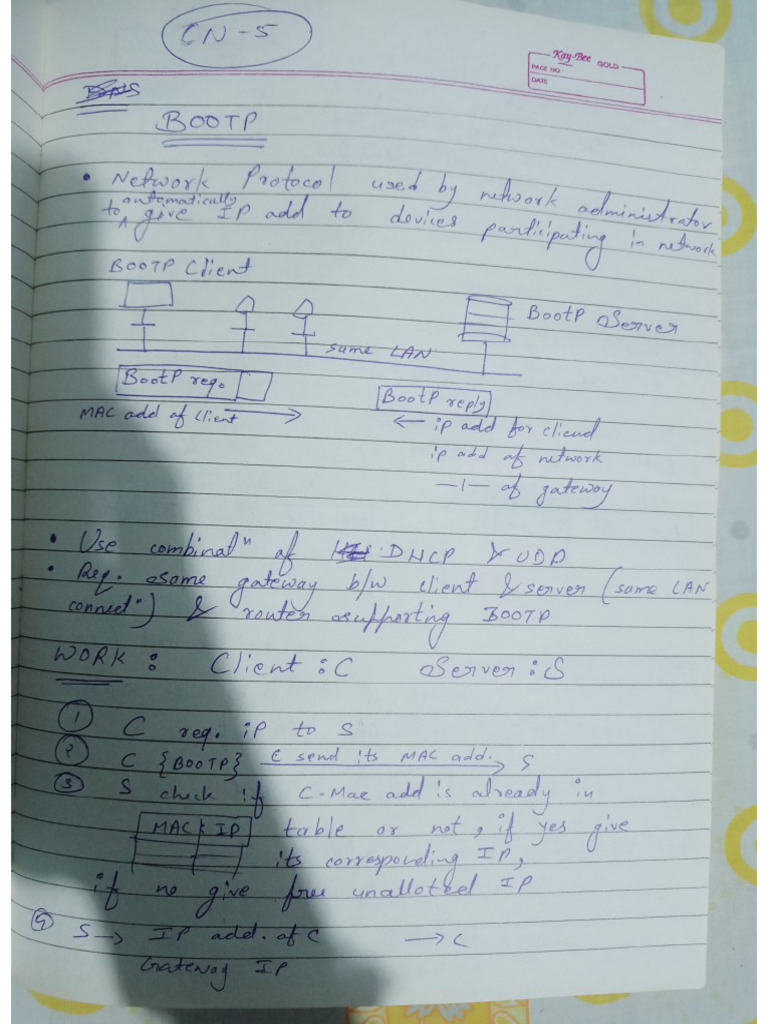 CN-5
Kay-Bee GOLD
PAGE NO.
DATE
BOOTP
• Network Protocol used by network administrator
to automatically give IP add to devices participating in network
BOOTP Client
BootP Server
same LAN
BootP req.
BootP reply
MAC add of client →
← ip add for cliend
ip add of network
—1— of gateway
• Use combinatⁿ of DHCP & UDP
• Req. same gateway b/w client & server (same LAN
connectⁿ) & router supporting BOOTP
WORK : Client : C Server : S
① C req. iP to S
② C {BOOTP} C send its MAC add. → S
③ S check if C-Mac add is already in
MAC IP table or not, if yes give
its corresponding IP,
if no give free unallotted IP
④ S → IP add. of C → C
Gateway IP